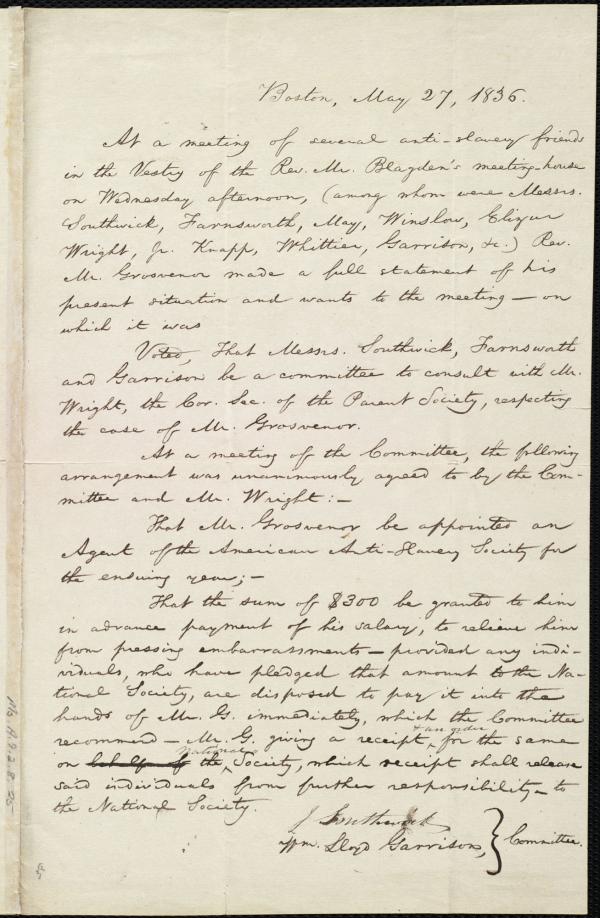 Boston, May 27, 1836.
At a meeting of several anti-slavery friends
in the Vestry of the Rev. Mr. Blagden's meeting-house
on Wednesday afternoon, (among whom were Messrs.
Southwick, Farnsworth, May, Winslow, Elizur
Wright, Jr. Knapp, Whittier, Garrison, &c.) Rev.
Mr. Grosvenor made a full statement of his
present situation and wants to the meeting — on
which it was
Voted, That Messrs. Southwick, Farnsworth
and Garrison be a committee to consult with Mr.
Wright, the Cor. Sec. of the Parent Society, respecting
the case of Mr. Grosvenor.
At a meeting of the Committee, the following
arrangement was unanimously agreed to by the Com-
mittee and Mr. Wright: —
That Mr. Grosvenor be appointed an
Agent of the American Anti-Slavery Society for
the ensuing year; —
That the sum of $300 be granted to him
in advance payment of his salary, to relieve him
from pressing embarrassments — provided any indi-
viduals, who have pledged that amount to the Na-
tional Society, are disposed to pay it into the
hands of Mr. G. immediately, which the Committee
recommend — Mr. G. giving a receipt & an order for the same
on behalf of the National Society, which receipt shall release
said individuals from further responsibility to
the National Society.
J Southwick
Wm. Lloyd Garrison, } Committee.
Ms. A.9.2.8.25